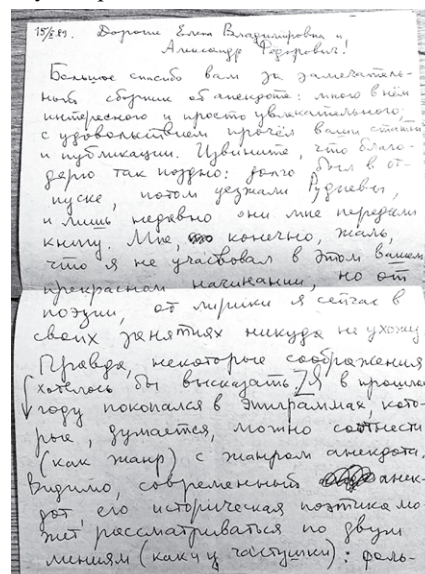 15/X.89. Дорогие Елена Владимировна и
Александр Фёдорович!
Большое спасибо вам за замечатель-
ный сборник об анекдоте: много в нём
интересного и просто увлекательного;
с удовольствием прочёл ваши статьи
и публикации. Извините, что благо-
дарю так поздно: долго был в от-
пуске, потом уезжали Рудневы,
и лишь недавно они мне передали
книгу. Мне, конечно, жаль,
что я не участвовал в этом вашем
прекрасном начинании, но от
поэзии, от лирики я сейчас в
своих занятиях никуда не ухожу
Правда, некоторые соображения
хотелось бы высказать. Я в прошлом
году покопался в эпиграммах, кото-
рые, думается, можно соотнести
(как жанр) с жанром анекдота.
Видимо, современный анек-
дот, его историческая поэтика мо-
жет рассматриваться по двум
линиям (как и у частушки): фоль-